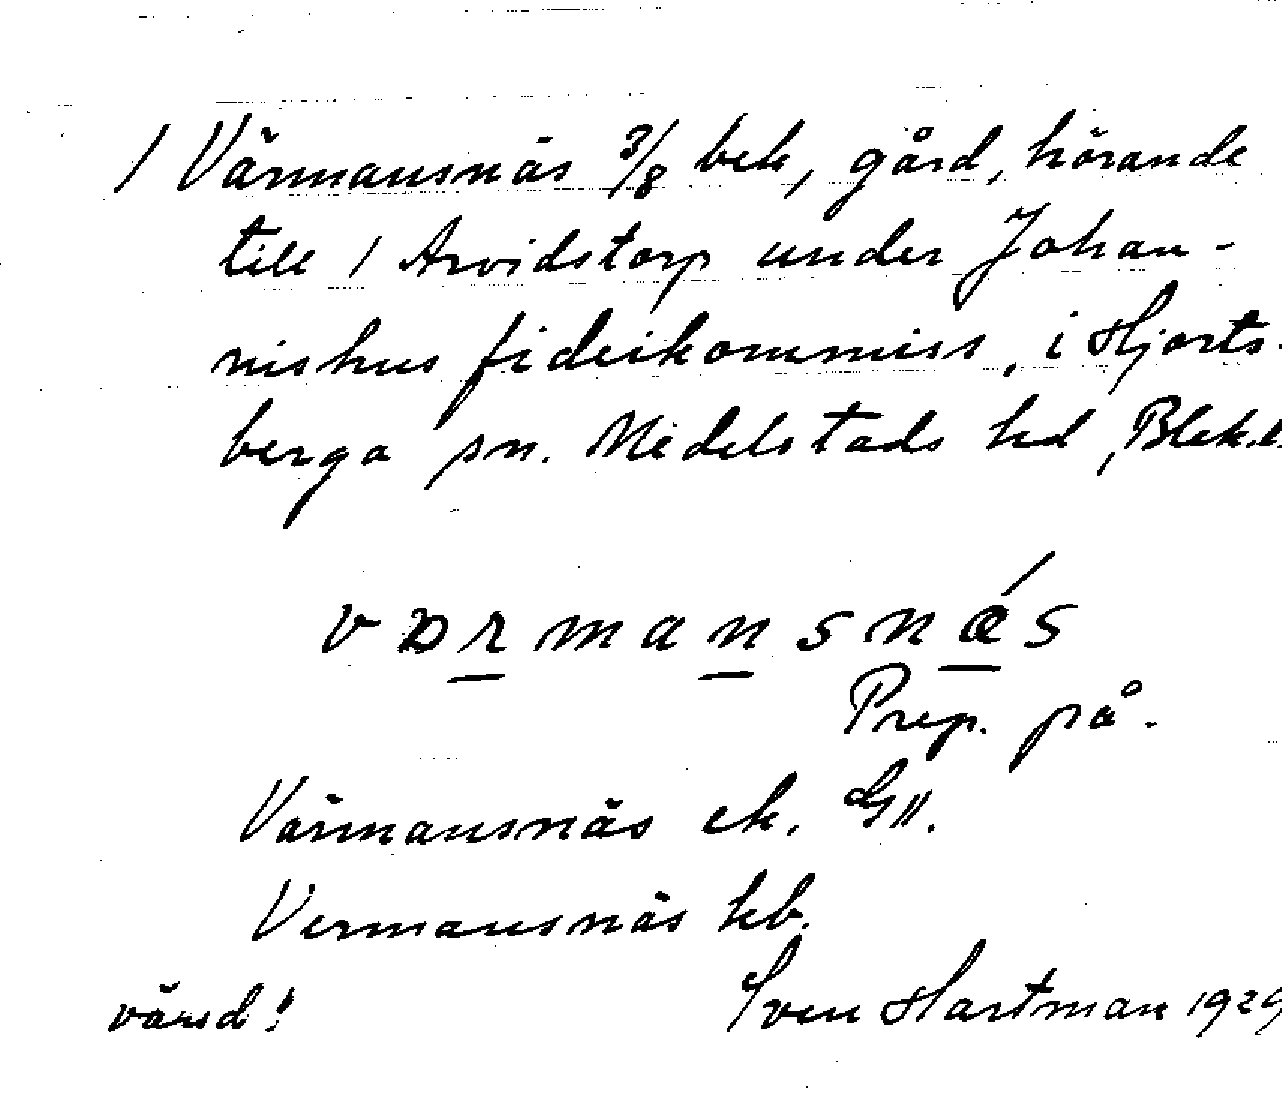 / Värmansnäs 3/8 bek, gård, hörande
till / Arvidstorp under Johan-
nishus fideikommiss, i Hjorts-
berga sn. Medelstads hd, Blek.
værmansnæ´s
Prep. på.
Värmansnäs ek. G11.
Vermansnäs kb.
vänd! Sven Hartman 1929